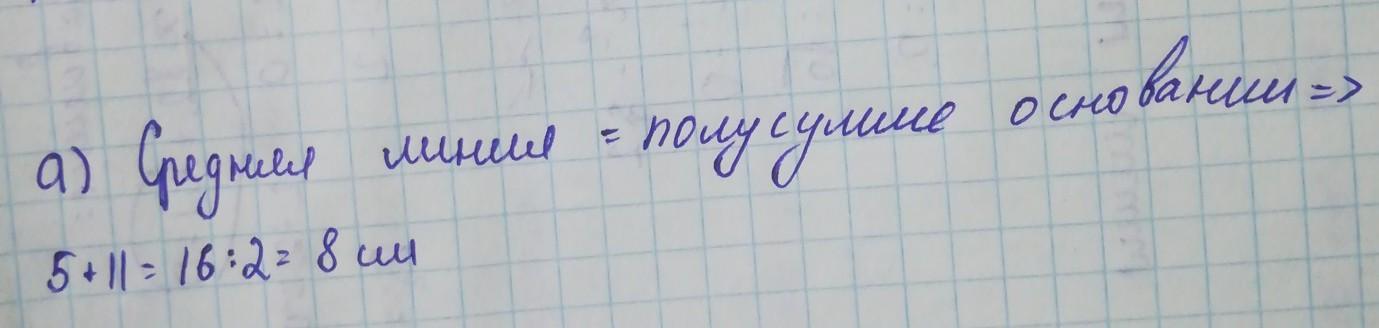 а) Средняя линия = полусумме основании =>
5+11=16:2= 8 см